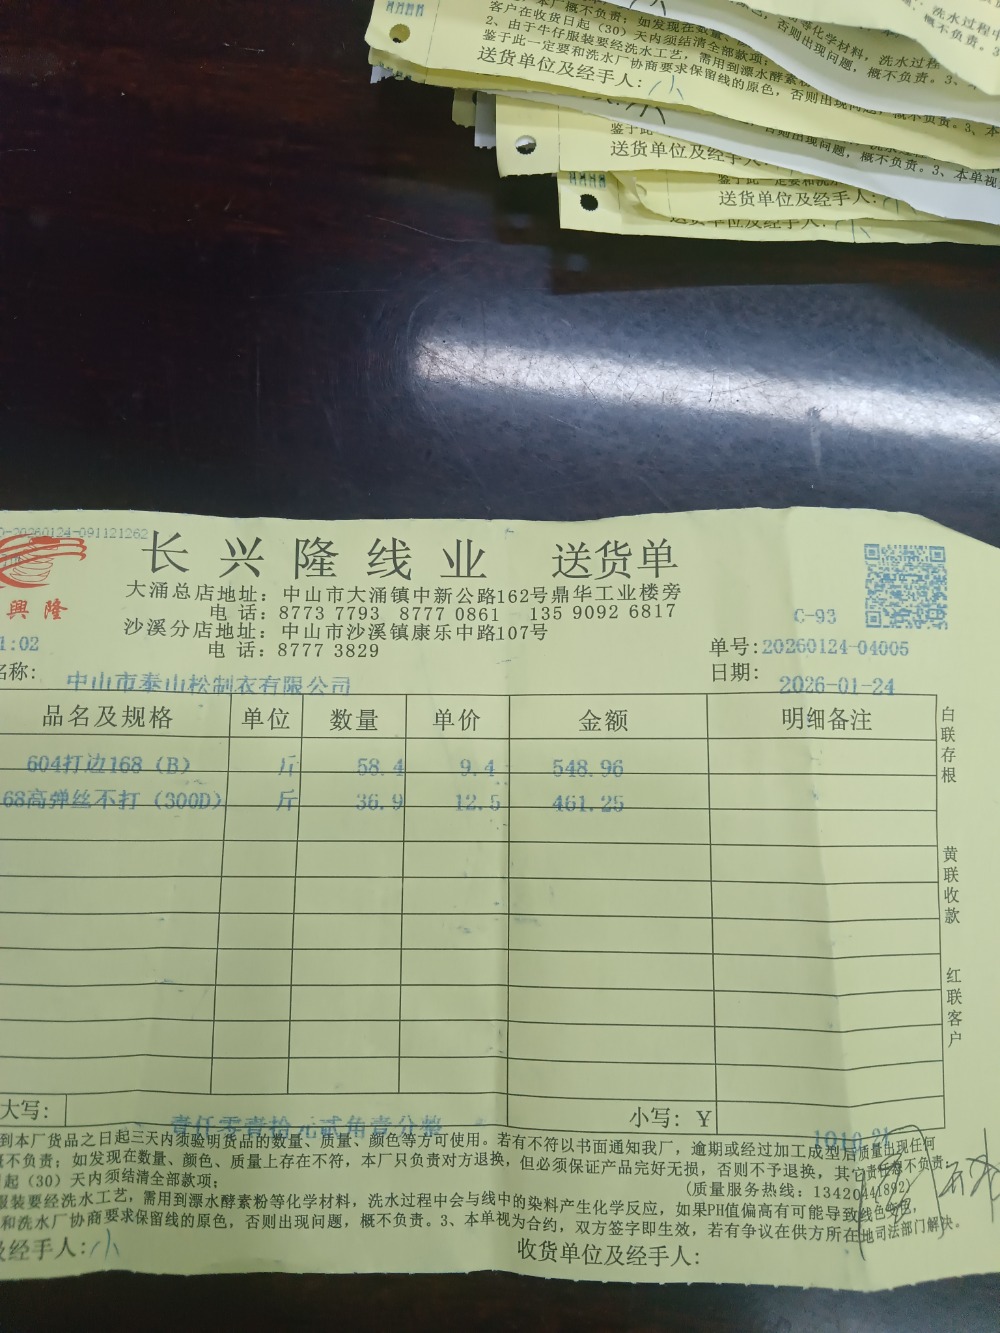 本厂概不负责；如发现在数量、
客户在收货日起（30）天内须结清全部款项；
2、由于牛仔服装要经洗水工艺，需用到漂水酵素粉
等化学材料，洗水过程
鉴于此一定要和洗水厂协商要求保留线的原色，否则出现问题，概不负责。3、本
送货单位及经手人：小
否则出现问题，概不负责。3、本单视
送货单位及经手人：
鉴于此一定要和洗水
送货单位及经手人：
送货单位及经手人：小
-20260124-091121262
长兴隆线业 送货单
大涌总店地址：中山市大涌镇中新公路162号鼎华工业楼旁
电话：8773 7793 8777 0861 135 9092 6817
沙溪分店地址：中山市沙溪镇康乐中路107号
电话：8777 3829
興隆
C-93
1:02
单号：20260124-04005
名称：中山市泰山松制衣有限公司
日期：2026-01-24
品名及规格 单位 数量 单价 金额 明细备注
604打边168（B） 斤 58.4 9.4 548.96
68高弹丝不打（300D） 斤 36.9 12.5 461.25
白联存根
黄联收款
红联客户
大写：壹仟零壹拾元贰角壹分整 小写：Y 1010.21
到本厂货品之日起三天内须验明货品的数量、质量、颜色等方可使用。若有不符以书面通知我厂，逾期或经过加工成型后质量出现任何
不负责；如发现在数量、颜色、质量上存在不符，本厂只负责对方退换，但必须保证产品完好无损，否则不予退换，其它责任恕不负责；
起（30）天内须结清全部款项； (质量服务热线：13420441892)
服装要经洗水工艺，需用到漂水酵素粉等化学材料，洗水过程中会与线中的染料产生化学反应，如果PH值偏高有可能导致线色务包，
和洗水厂协商要求保留线的原色，否则出现问题，概不负责。3、本单视为合约，双方签字即生效，若有争议在供方所在地司法部门解决。
及经手人：小 收货单位及经手人：